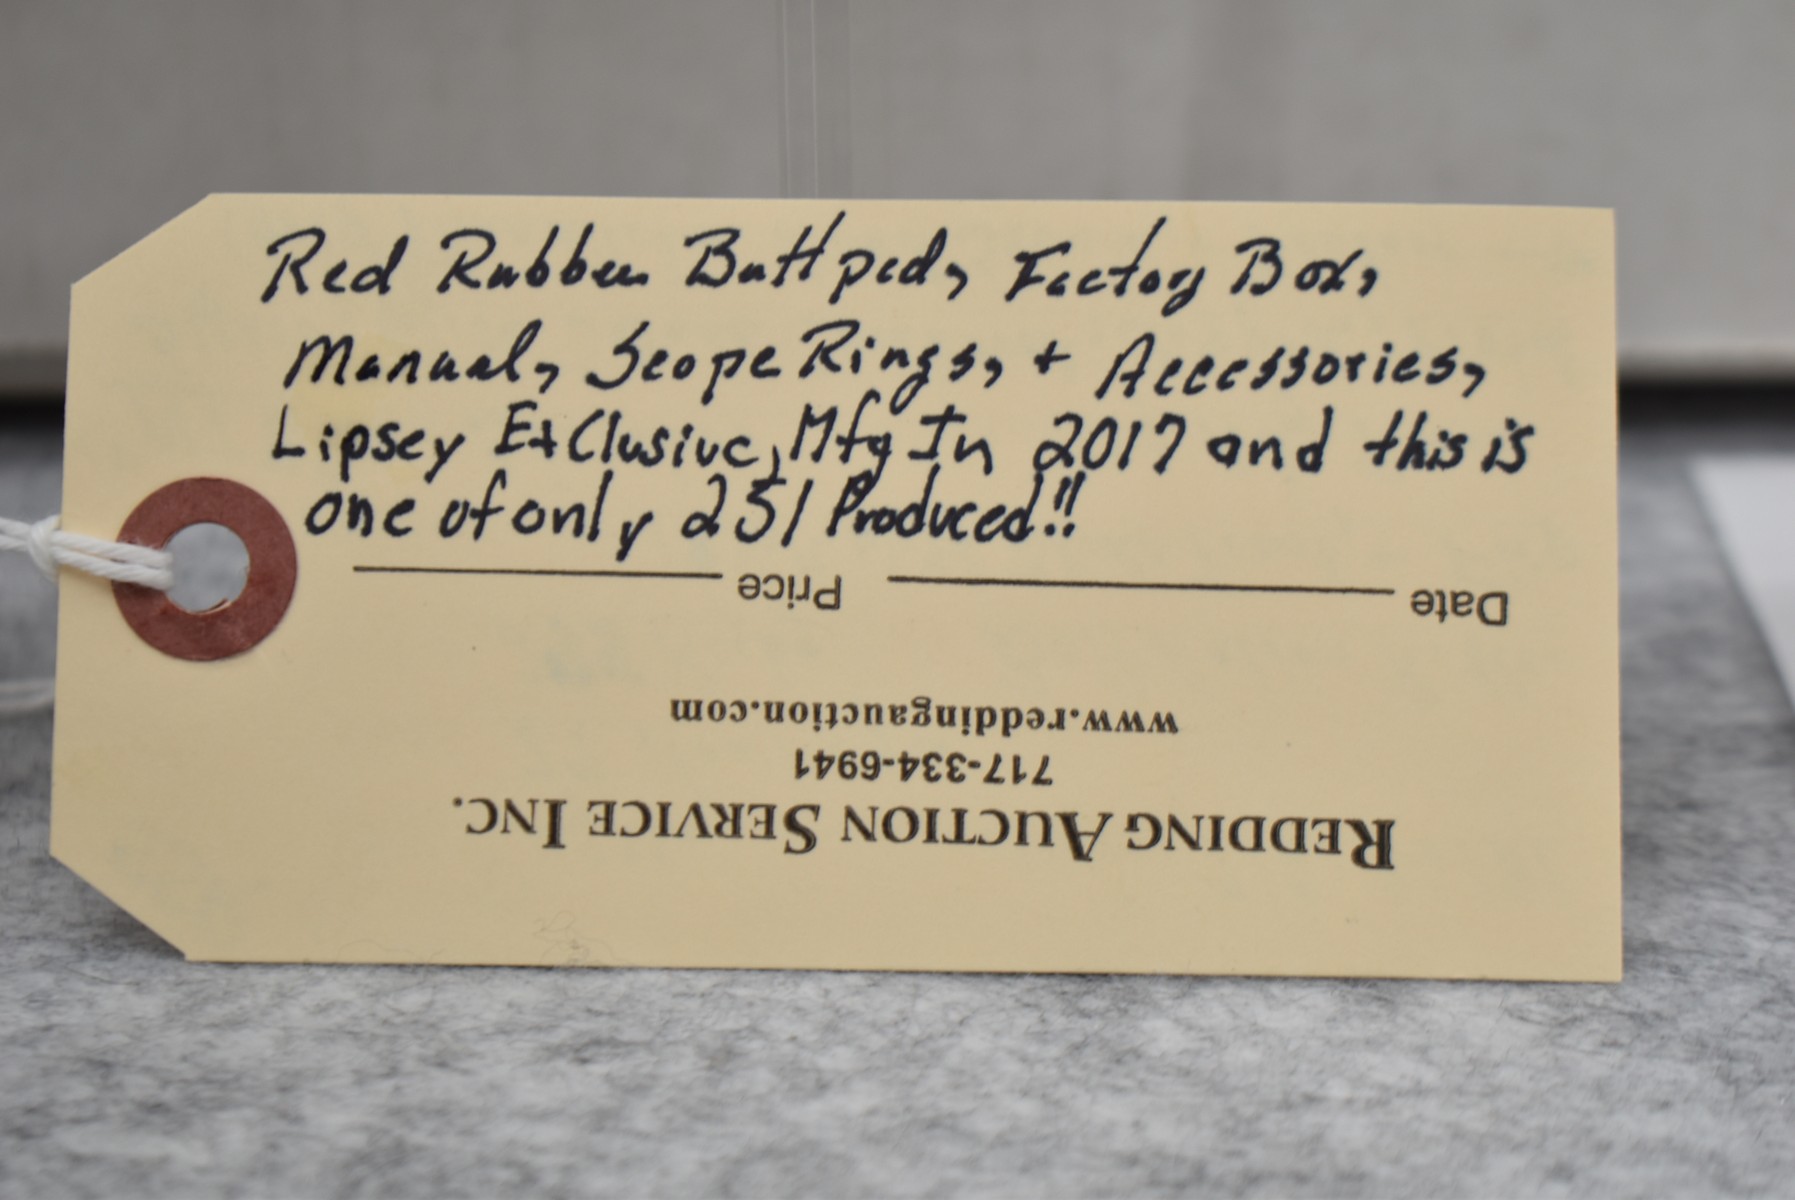 Red Rubber Buttpad, Factory Box,
Manual, Scope Rings, + Accessories,
Lipsey Exclusive, Mfg In 2017 and this is
one of only 251 Produced!!
Date Price
www.reddingauction.com
717-334-6941
REDDING AUCTION SERVICE INC.